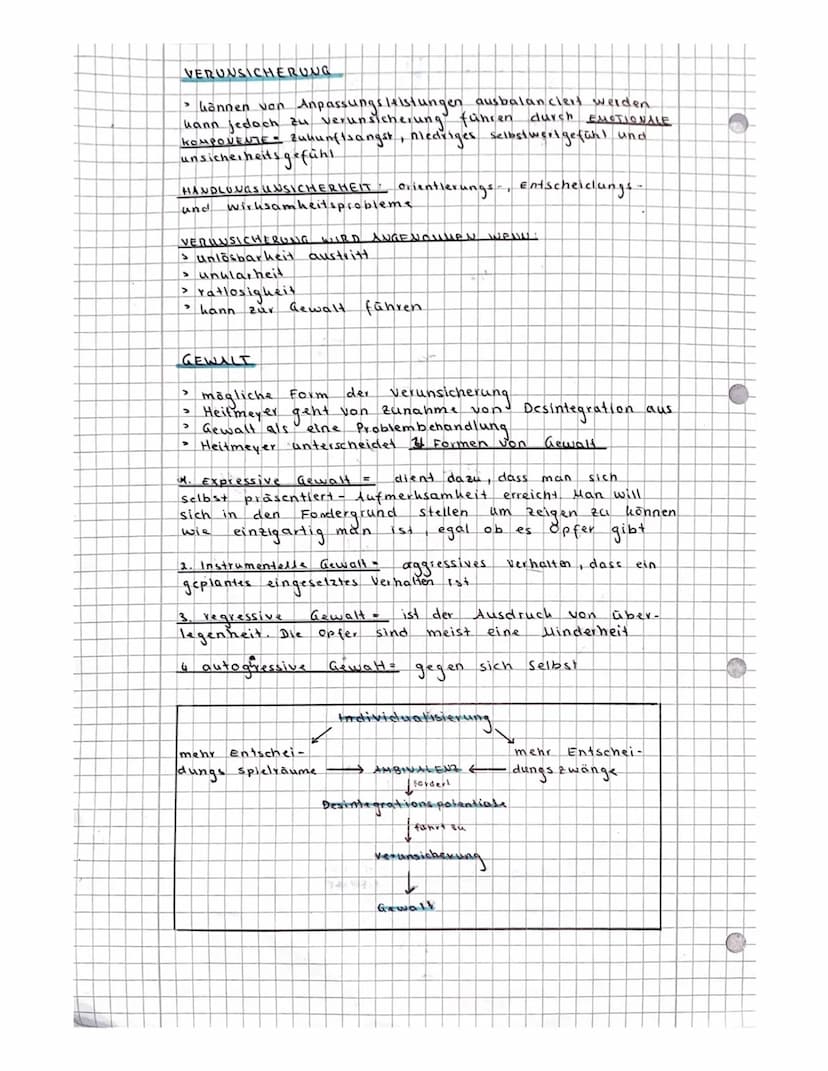 VERUNSICHERUNG
> können von Anpassungsleistungen ausbalanciert werden
kann jedoch zu verunsicherung führen durch EMOTIONALE
KOMPONENTE = zukunftsangst, niedriges selbstwertgefühl und
unsicherheitsgefühl
HANDLUNGSUNSICHERHEIT: Orientierungs-, Entscheidungs-
und wirksamkeitsprobleme
VERUNSICHERUNG WIRD ANGENOMMEN WENN:
> unlösbarkeit austritt
> unklarheit
> ratlosigkeit
> kann zur Gewalt führen
GEWALT
> mögliche Form der Verunsicherung
> Heitmeyer geht von zunahme von Desintegration aus
> Gewalt als eine Problembehandlung
> Heitmeyer unterscheidet 4 Formen von Gewalt
1. Expressive Gewalt = dient dazu, dass man sich
selbst präsentiert - Aufmerksamkeit erreicht. Man will
sich in den Fordergrund stellen um zeigen zu können
wie einzigartig man ist, egal ob es Opfer gibt
2. Instrumentelle Gewalt = aggressives Verhalten, dass ein
geplantes eingesetztes Verhalten ist
3. regressive Gewalt = ist der Ausdruck von über-
legenheit. Die Opfer sind meist eine Minderheit
4 autogressive Gewalt = gegen sich selbst
Individualisierung
mehr Entschei-
dungs spielräume
mehr Entschei-
dungszwänge
AMBIVALENZ
fördert
Desintegrationspotentiale
führt zu
Verunsicherung
Gewalt